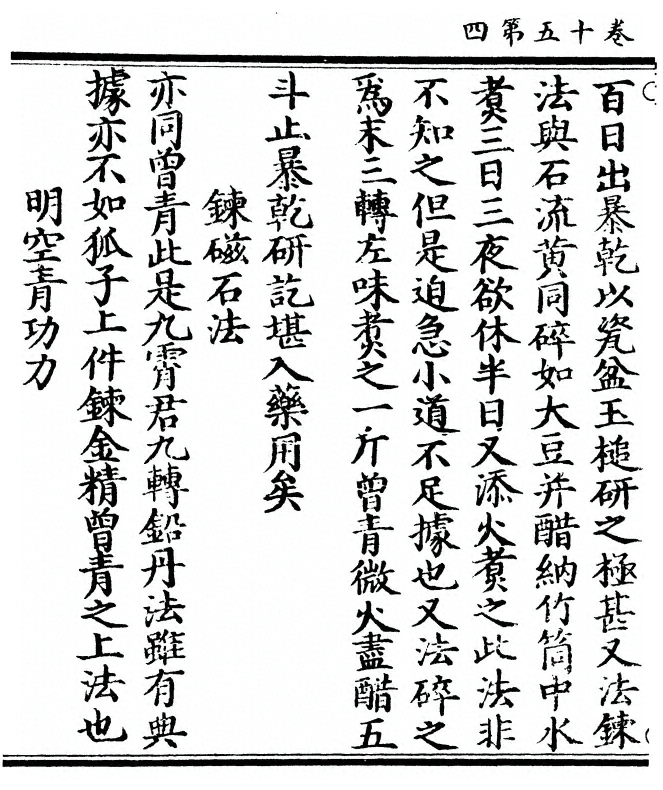 卷十五第四
百日出暴乾以瓷盆玉槌研之極甚又法鍊
法與石流黃同碎如大豆并醋納竹筒中水
煑三日三夜欲休半日又添火煑之此法非
不知之但是迫急小道不足據也又法碎之
爲末三轉左味煑之一斤曾青微火盡醋五
斗止暴乾研訖堪入藥用矣
鍊磁石法
亦同曾青此是九霄君九轉鉛丹法雖有典
據亦不如狐子上件鍊金精曾青之上法也
明空青功力